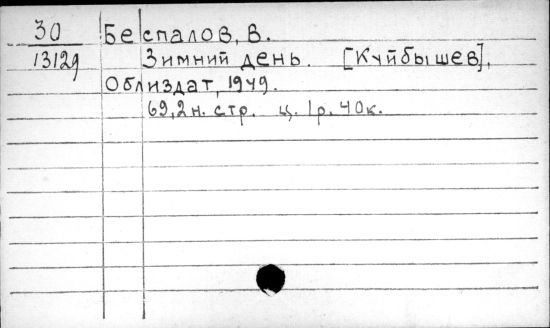 30 Беспалов, В.
13129 Зимний день. [Куйбышев],
Облиздат, 1949.
69,2н. стр. ц. 1р. 40к.